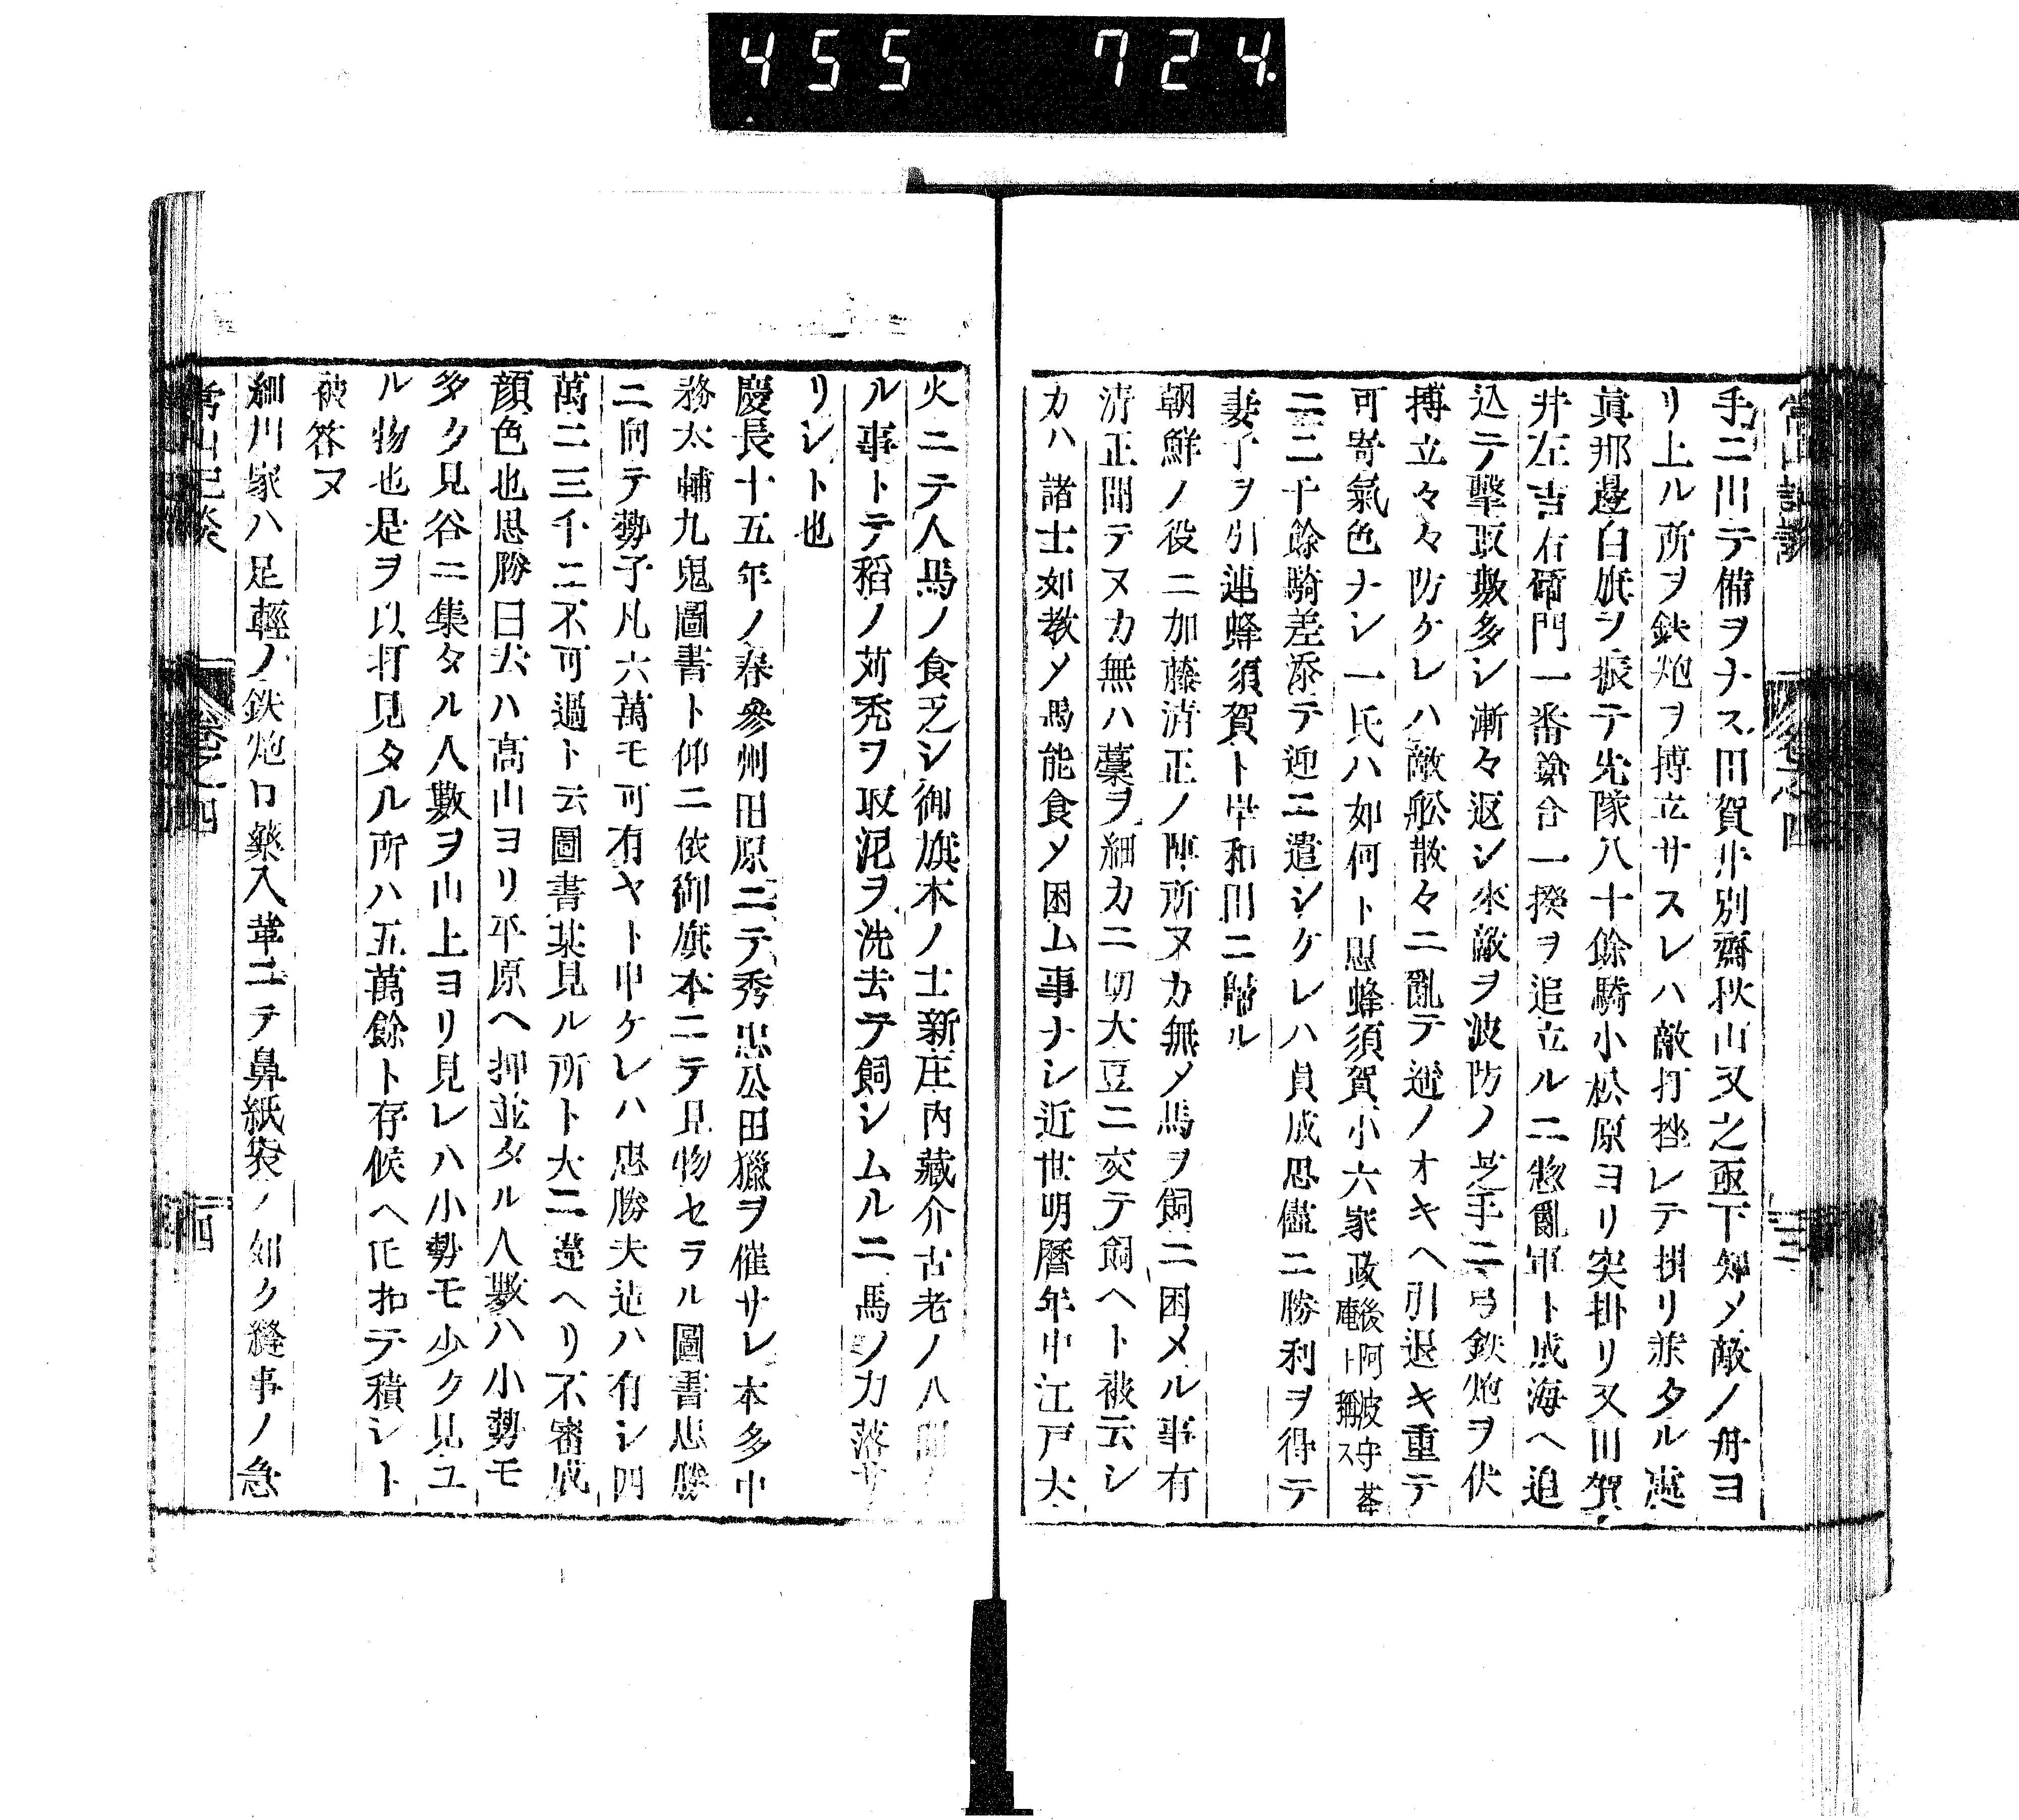 455 724.
手ニ川テ備ヲナス田賀井別齋秋山又之亟下知メ敵ノ舟ヨ
リ上ル所ヲ鉄炮ヲ搏立サスレハ敵打挫レテ掛リ兼タル處
眞那邊白旗ヲ振テ先隊八十餘騎小松原ヨリ突掛リ又田賀
井左吉右衛門一番鎗合一揆ヲ追立ルニ惣亂軍ト成海ヘ追
込テ撃取數多シ漸々返シ來敵ヲ波防ノ芝手ニ弓鉄炮ヲ伏
搏立々々防ケレハ敵舩散々ニ亂テ迯ノオキヘ引退キ重テ
可寄氣色ナシ一氏ハ如何ト思蜂須賀小六家政後阿波守菴庵ト稱ス
ニ二十餘騎差添テ迎ニ遣シケレハ貞成思儘ニ勝利ヲ得テ
妻子ヲ引連蜂須賀ト岸和田ニ歸ル
朝鮮ノ役ニ加藤清正ノ陣所ヌカ無メ馬ヲ飼ニ困メル事有
清正聞テヌカ無ハ藁ヲ細カニ切大豆ニ交テ飼ヘト被云シ
カハ諸士如教メ馬能食メ困ム事ナシ近世明曆年中江戸大
火ニテ人馬ノ食乏シ御旗本ノ士新庄内藏介古老ノ八
ル事トテ稻ノ苅禿ヲ取泥ヲ洗去テ飼シムルニ馬ノ力落サ
リシト也
慶長十五年ノ春參州田原ニテ秀忠公田獵ヲ催サレ本多中
務太輔九鬼圖書ト仰ニ依御旗本ニテ見物セラル圖書忠勝
ニ向テ勢子凡六萬モ可有ヤト申ケレハ忠勝夫迠ハ有シ四
萬二三千ニ不可過ト云圖書某見ル所ト大ニ違ヘリ不審成
顔色也忠勝曰夫ハ高山ヨリ平原ヘ押並タル人數ハ小勢モ
多ク見谷ニ集タル人數ヲ山上ヨリ見レハ小勢モ少ク見ユ
ル物也是ヲ以打見タル所ハ五萬餘ト存候ヘ𪜈扣テ積シト
被荅ヌ
細川家ハ足輕ノ鉄炮口藥入革ニテ鼻紙袋ノ如ク縫事ノ急
常山紀談 卷之四 四